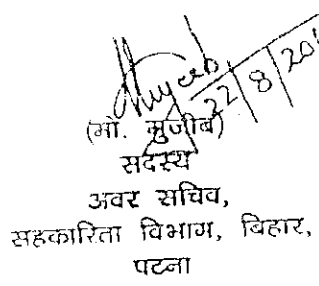 22/8/20
(मो. मुजीब)
सदस्य
अवर सचिव,
सहकारिता विभाग, बिहार,
पटना